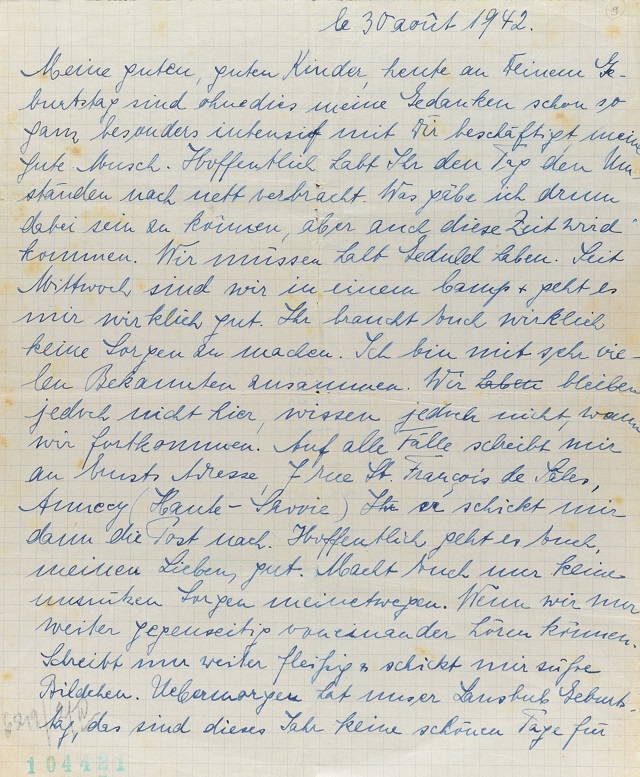 le 30 août 1942.
Meine guten, guten Kinder, heute an Deinem Ge-
burtstag sind ohnedies meine Gedanken schon so
ganz besonders intensif mit Dir beschäftigt, meine
gute Musch. Hoffentlich habt Ihr den Tag den Um-
ständen nach nett verbracht. Was gäbe ich drum
dabei sein zu können, aber auch diese Zeit wird
kommen. Wir müssen halt Geduld haben. Seit
Mittwoch sind wir in einem Camp + geht es
mir wirklich gut. Ihr braucht Euch wirklich
keine Sorgen zu machen. Ich bin mit sehr vie-
len Bekannten zusammen. Wir haben bleiben
jedoch nicht hier, wissen jedoch nicht, wann
wir fortkommen. Auf alle Fälle schreibt mir
an Ernsts Adresse, 7 rue St. François de Sales,
Annecy (Haute-Savoie) Ihr er schickt mir
dann die Post nach. Hoffentlich geht es Euch,
meinen Lieben, gut. Macht Euch nur keine
unnützen Sorgen meinetwegen. Wenn wir nur
weiter gegenseitig voneinander hören können.
Schreibt nur weiter fleißig + schickt mir süße
Bildchen. Uebermorgen hat unser Geburts-
tag, das sind dieses Jahr keine schönen Tage für
104421